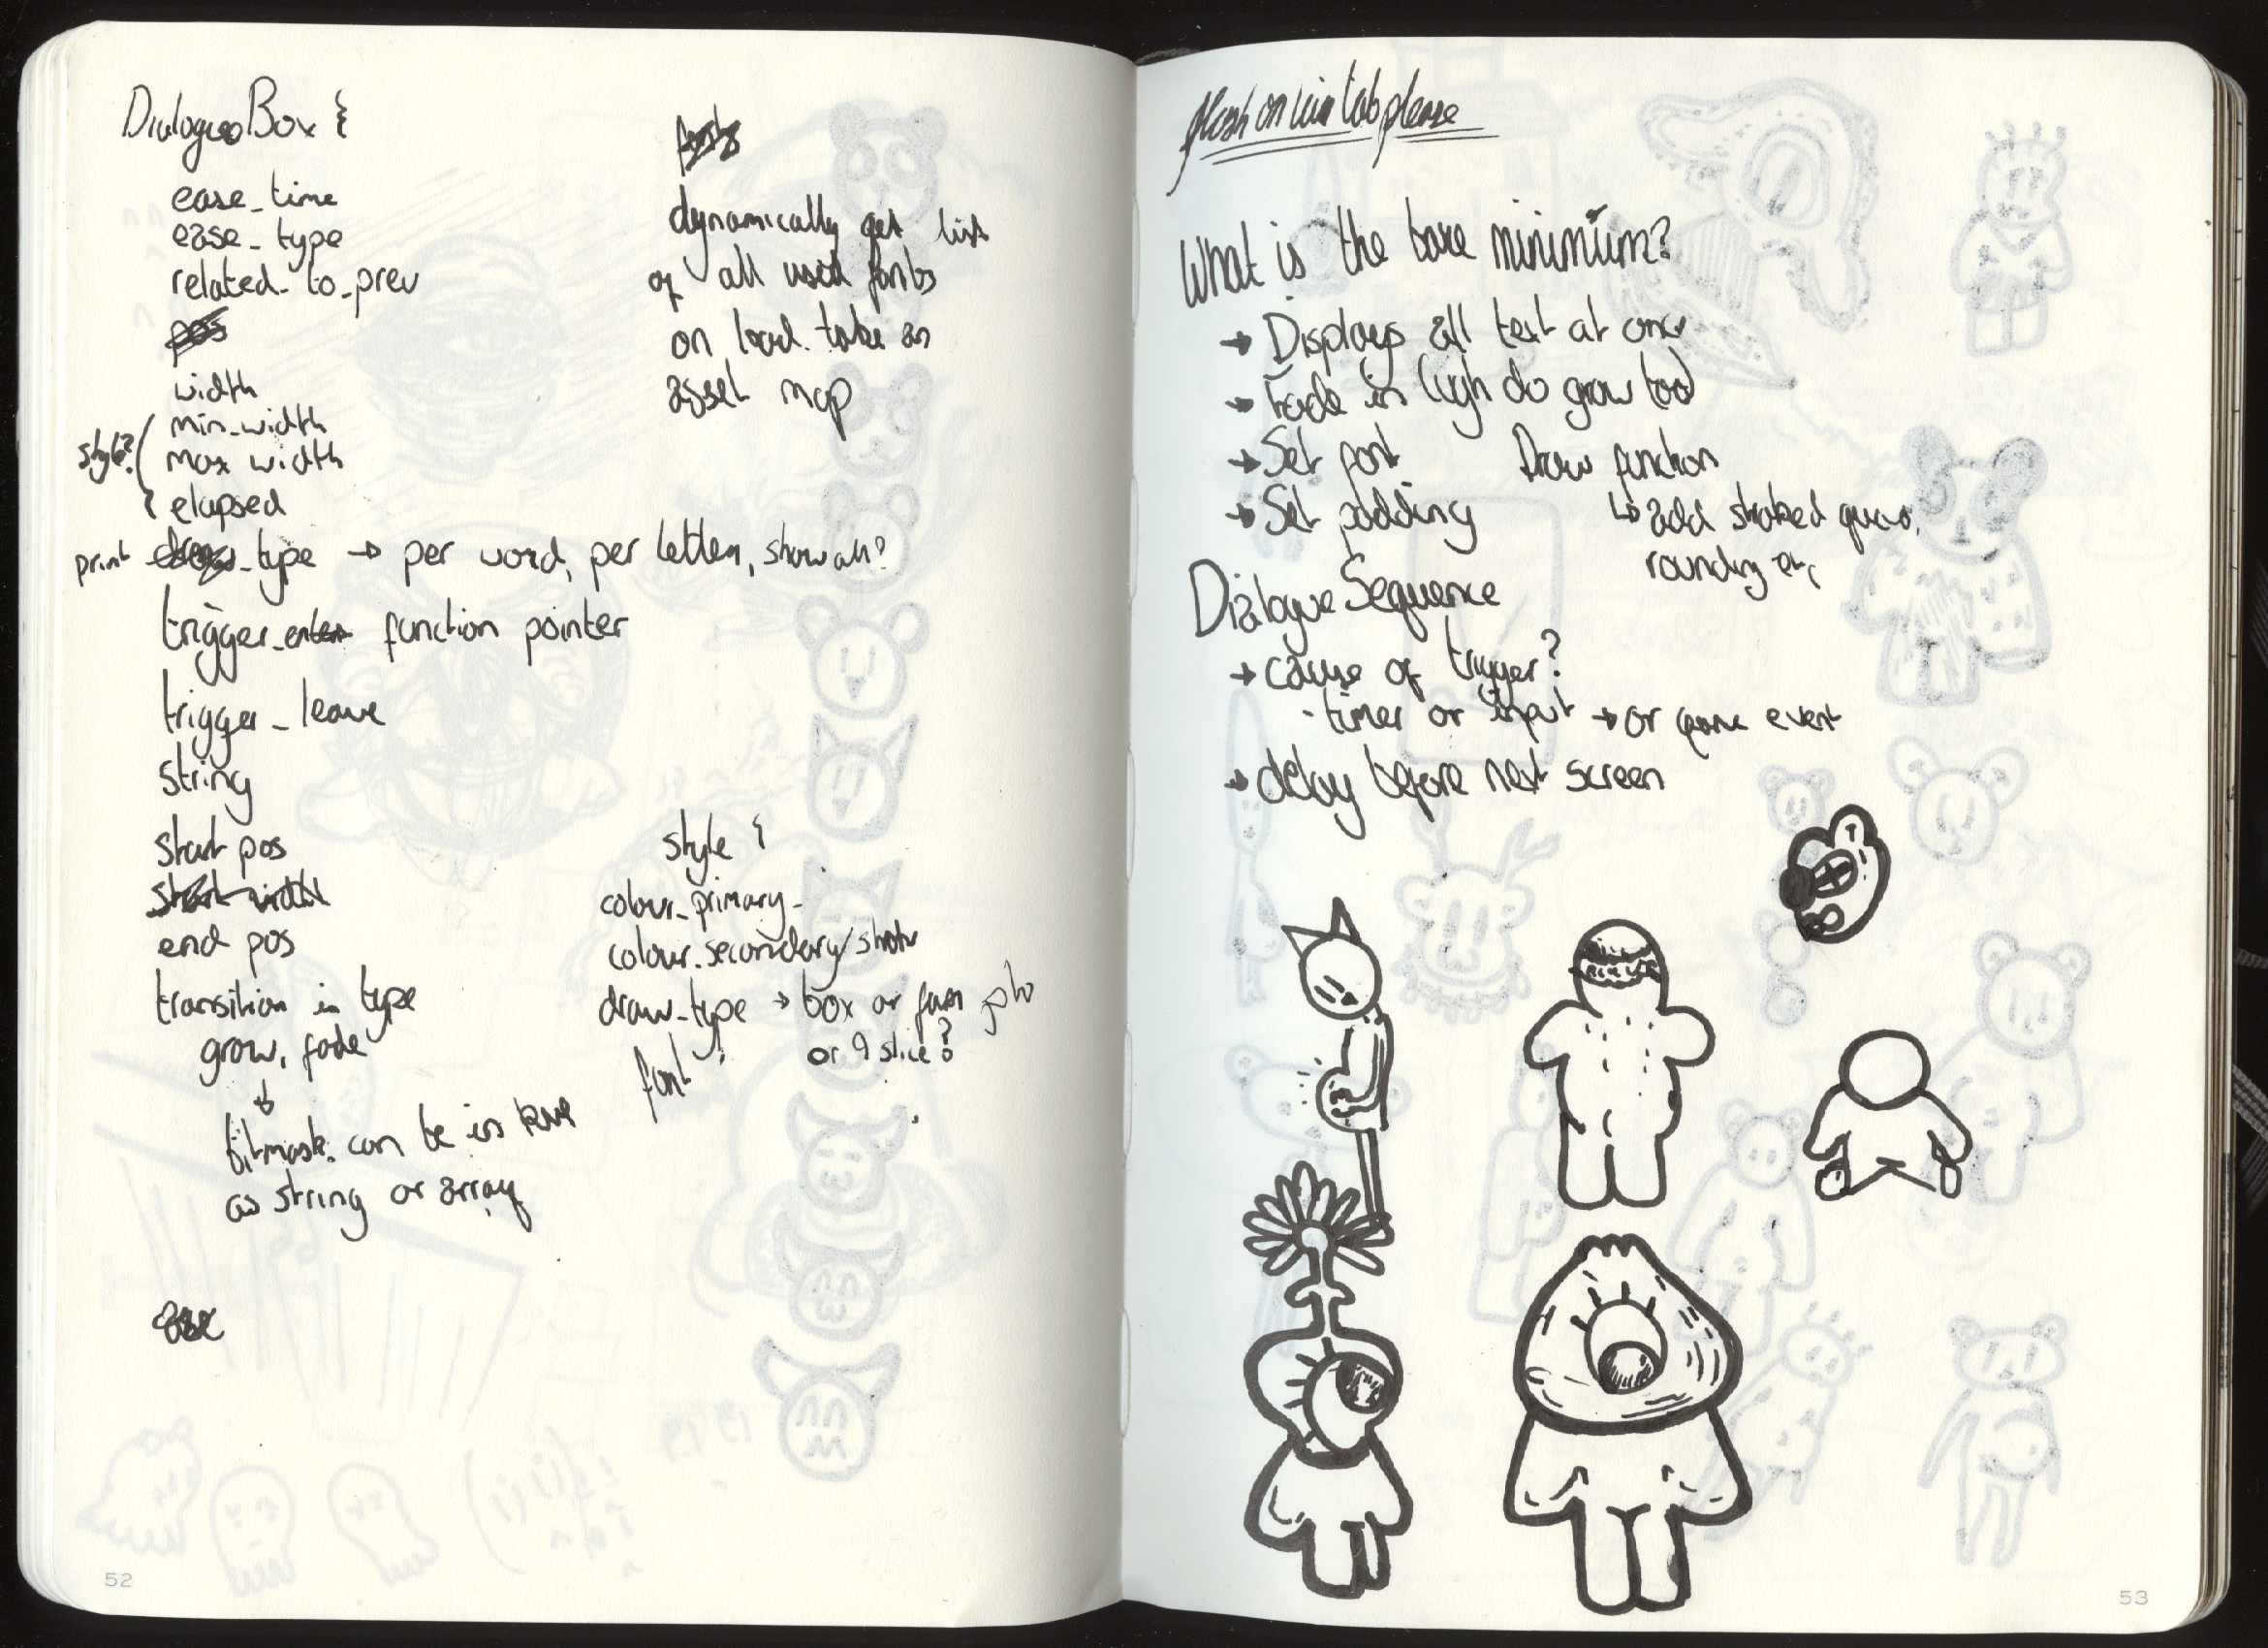 DialogueBox {
ease_time
ease_type
related_to_prev
pos
width
style? ( min_width
max width
{ elapsed
print draw_type → per word, per letter, show all?
trigger_enter function pointer
trigger_leave
string
start pos
start width
end pos
transition in type
grow, fade
↓
bitmask. can be in
as string or array
fonts
dynamically get list
of all used fonts
on load. take an
asset map
style {
colour_primary
colour_secondary/
draw_type → box or
or 9 slice?
font
52
flash on win tab please
What is the bare minimum?
→ Displays all text at once
→ Fade in (ugh do grow too)
→ Set font
→ Set padding
Draw function
↳ add stroked quad,
rounding etc
Dialogue Sequence
→ cause of trigger?
· timer or input → or game event
→ delay before next screen
53